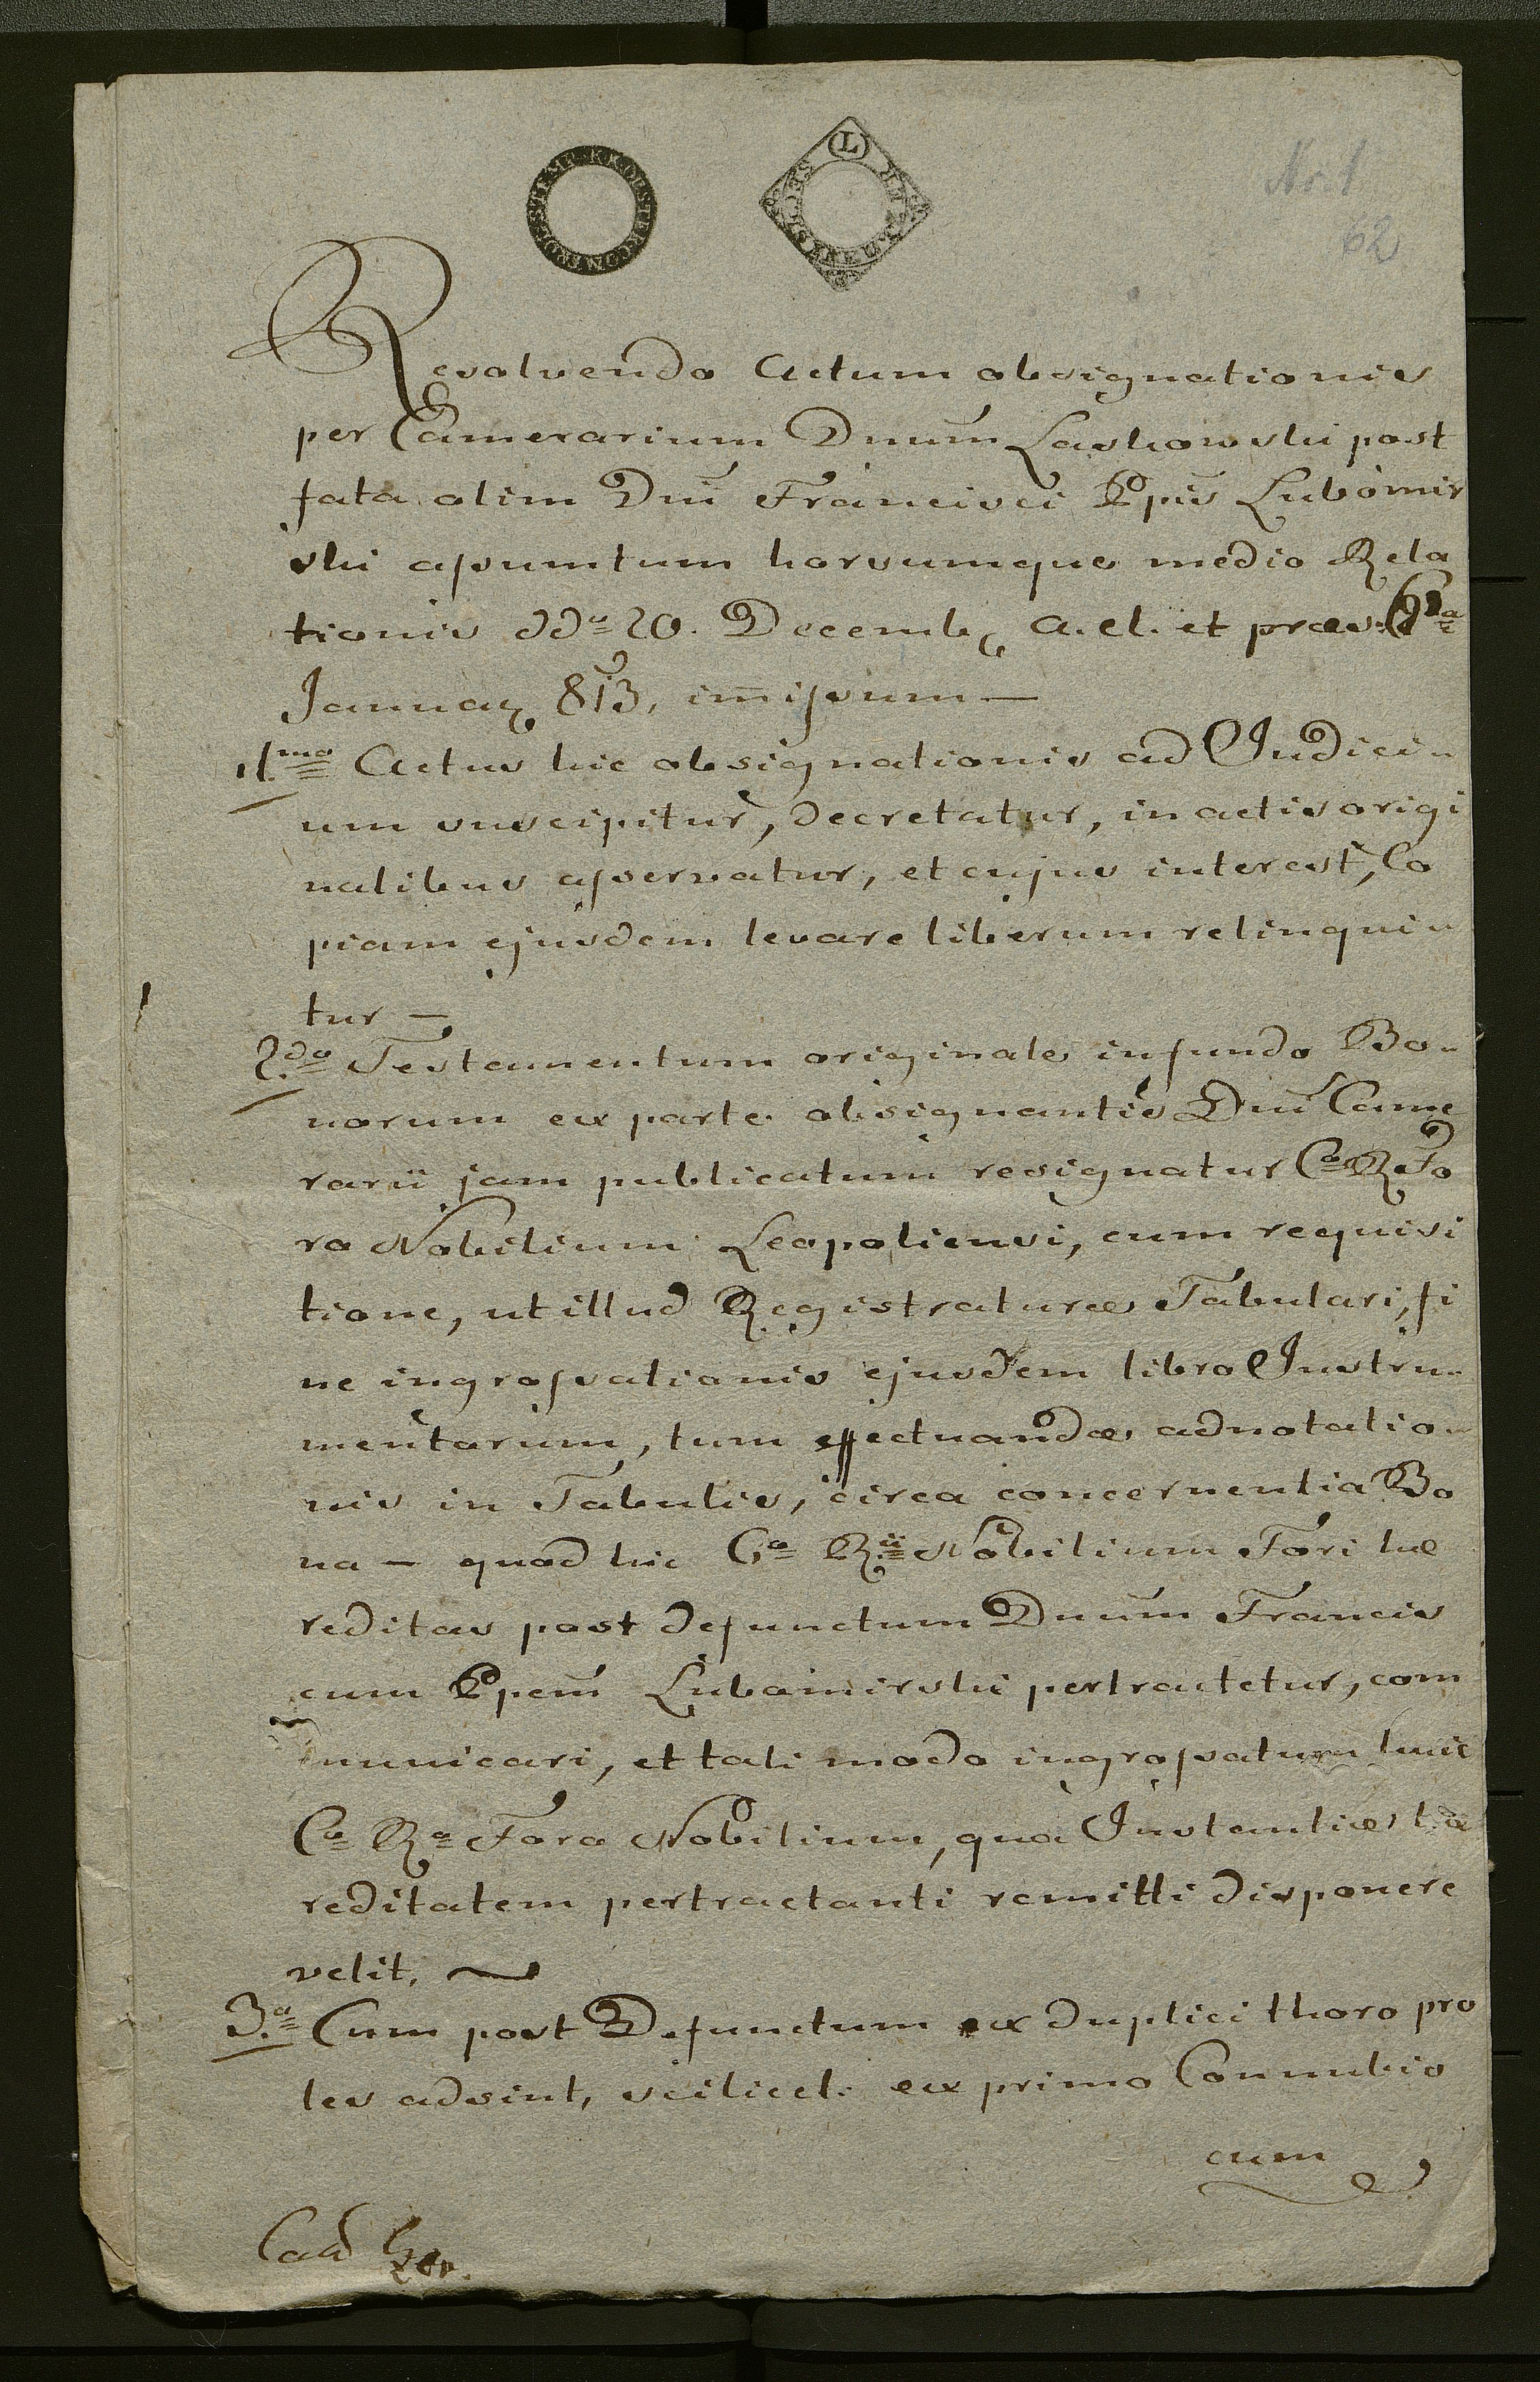 Nr. 1
62
Resolvendo Actum obsignationis
per Camerarium Dnum Laskowski post
fata olim Dni Francisci Ppis Lubomir
ski assumtum horsumque medio Rela
tionis ddo 20. Decemb. a. el. et praes.
Januar. 813, immissum —
1mo Actus hic obsignationis ad Judici-
um suscipitur, decretatur, in actis origi
nalibus asservatur, et cujus interest, Co
piam ejusdem levare liberum relinqui-
tur —
2do Testamentum originale in fundo Bo-
norum ex parte obsignantis Dni Came
rarii jam publicatum resignatur Co Ro Fo
ro Nobilium Leopoliensi, cum requisi
tione, ut illud Registraturae Tabulari, fi
ne ingrossationis ejusdem libro Instru-
mentorum, tum effectuandae adnotatio-
nis in Tabulis, circa concernentia Bo
na — quod hic Co Rii Nobilium Fori hae
reditas post defunctum Dnum Francis
cum Ppem Lubomirski pertractetur, com
municari, et tali modo ingrossatum huic
Co Ro Foro Nobilium, qua Instantiae hae
reditatem pertractanti remitti disponere
velit.
3o Cum post Defunctum ex duplici thoro pro
les adsint, scilicet: ex primo Connubio
cum